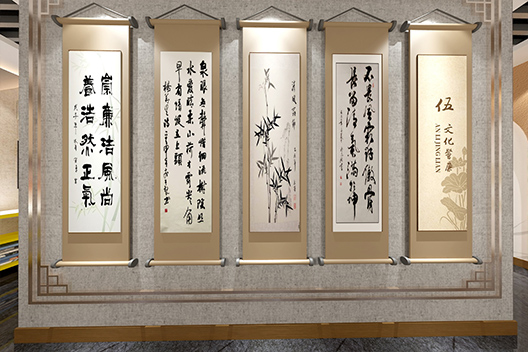 崇廉洁风尚
養浩然正氣
泉眼无聲惜细流树陰照
水爱晴柔小荷才露尖尖角
早有蜻蜓立上頭
不要人夸好颜色
只留清氣满乾坤
伍
文化警廉
ANLIJINGLIAN